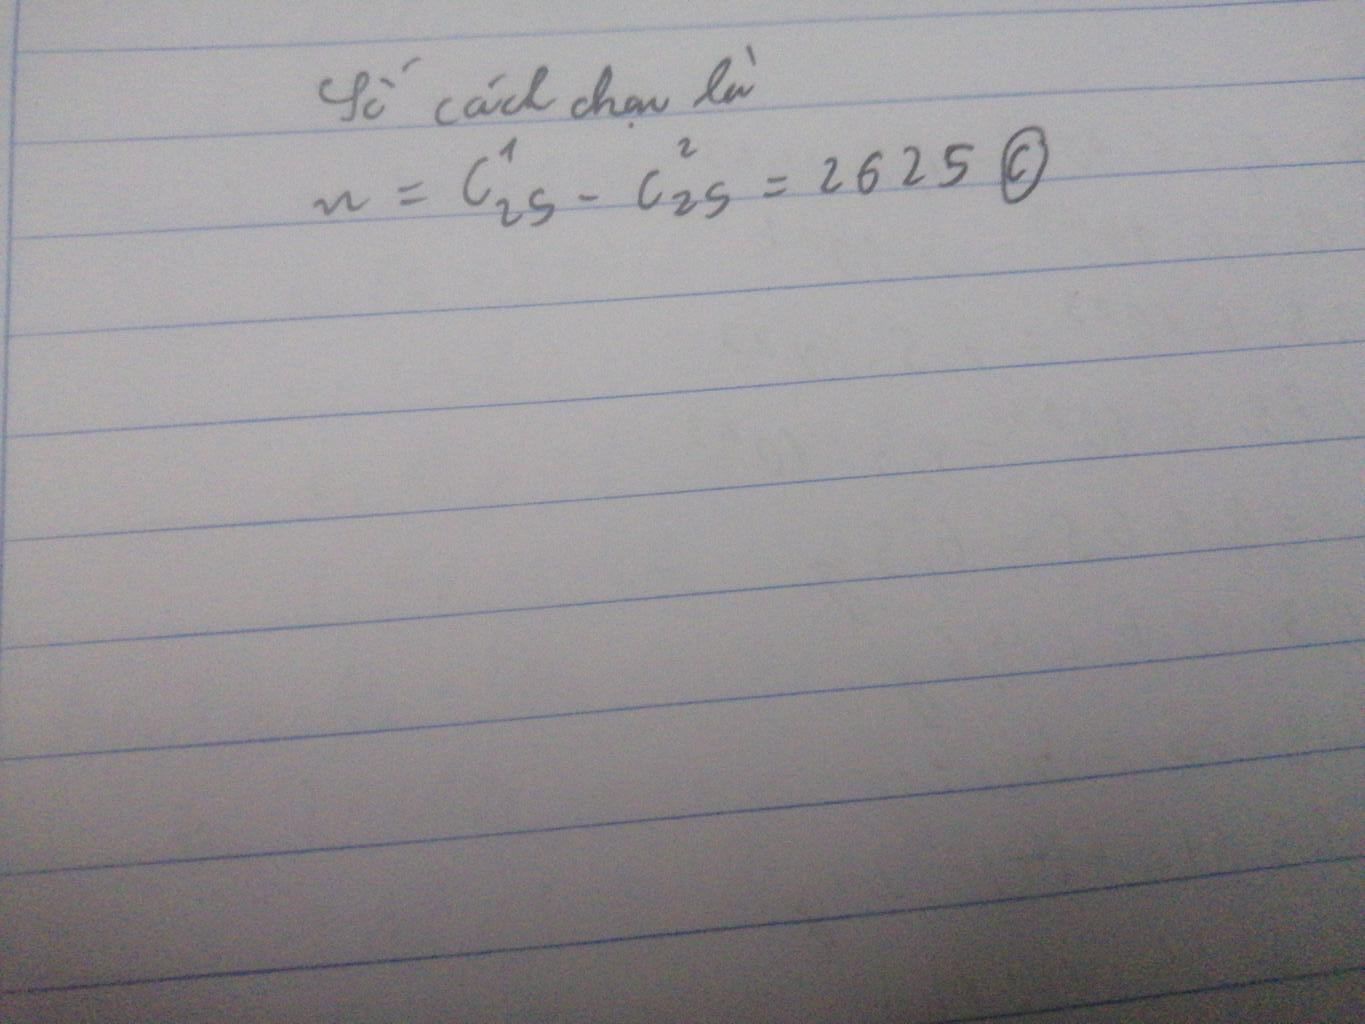 Số cách chọn là
n = C¹₂₅ - C²₂₅ = 2625 Ⓒ